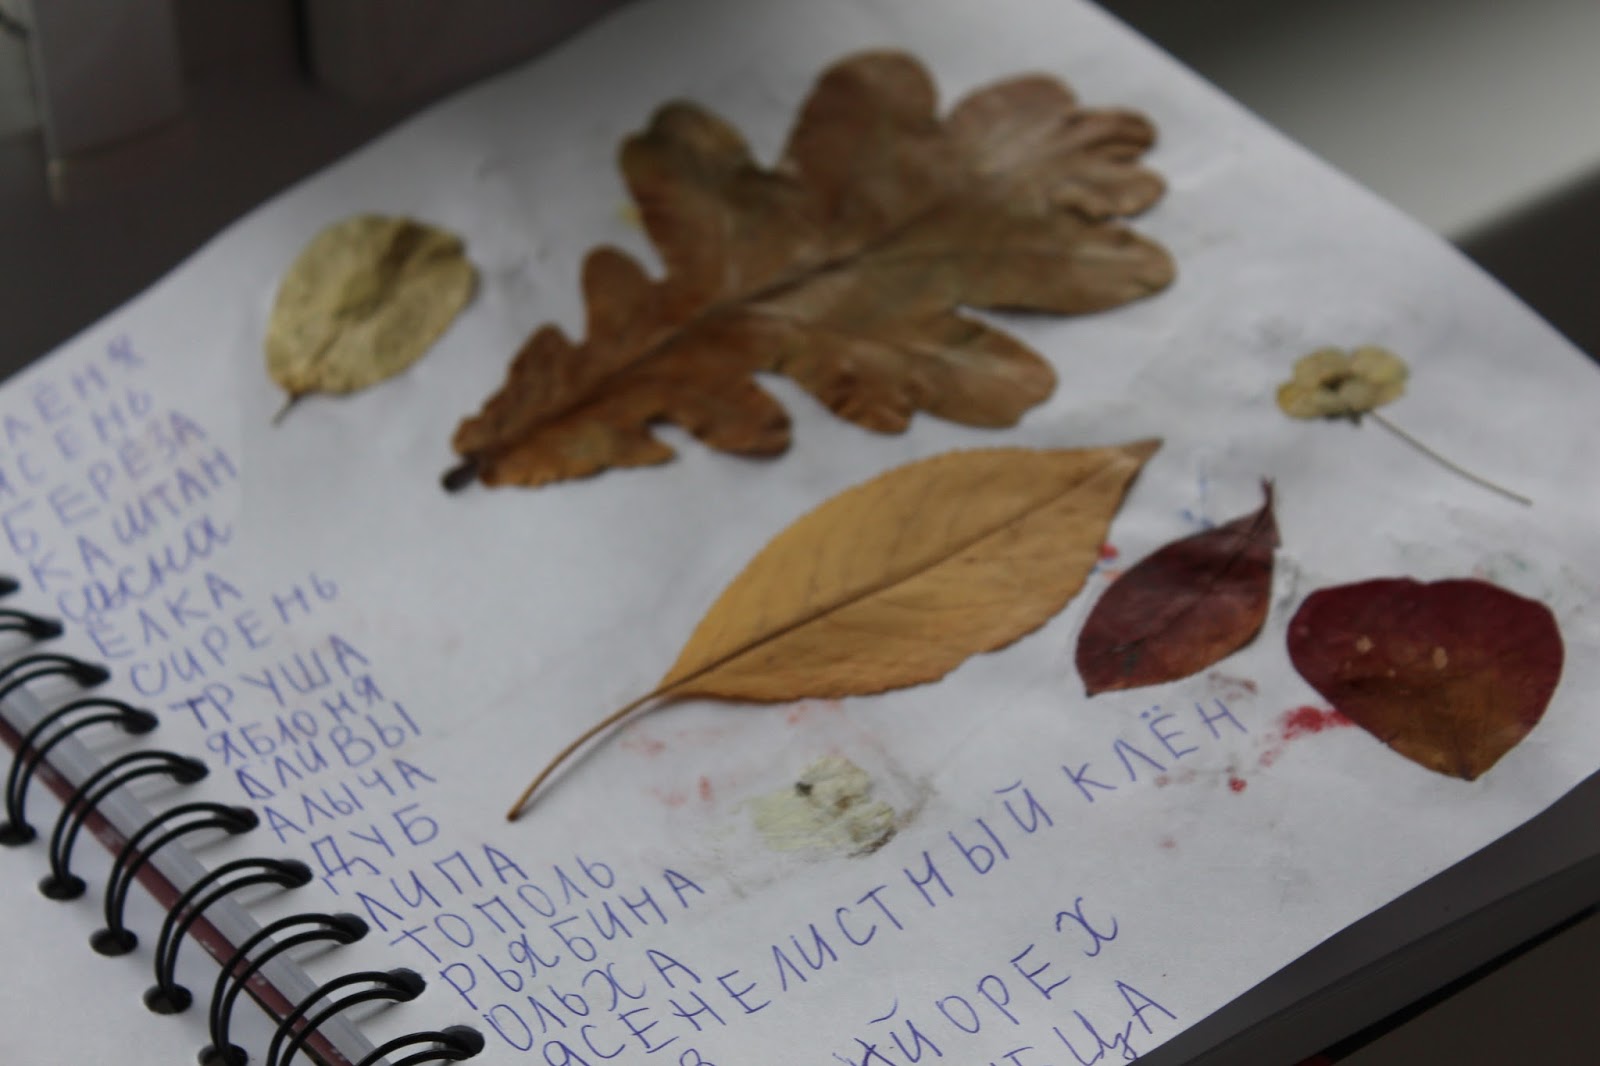 ЛЁНЯ
ЯСЕНЬ
БЕРЁЗА
КАШТАН
сосна
ЁЛКА
СИРЕНЬ
ГРУША
ЯБЛОНЯ
СЛИВЫ
АЛЫЧА
ДУБ
ЛИПА
ТОПОЛЬ
РЬЯБИНА
ОЛЬХА
ЯСЕНЕЛИСТНЫЙ КЛЁН
ОРЕХ